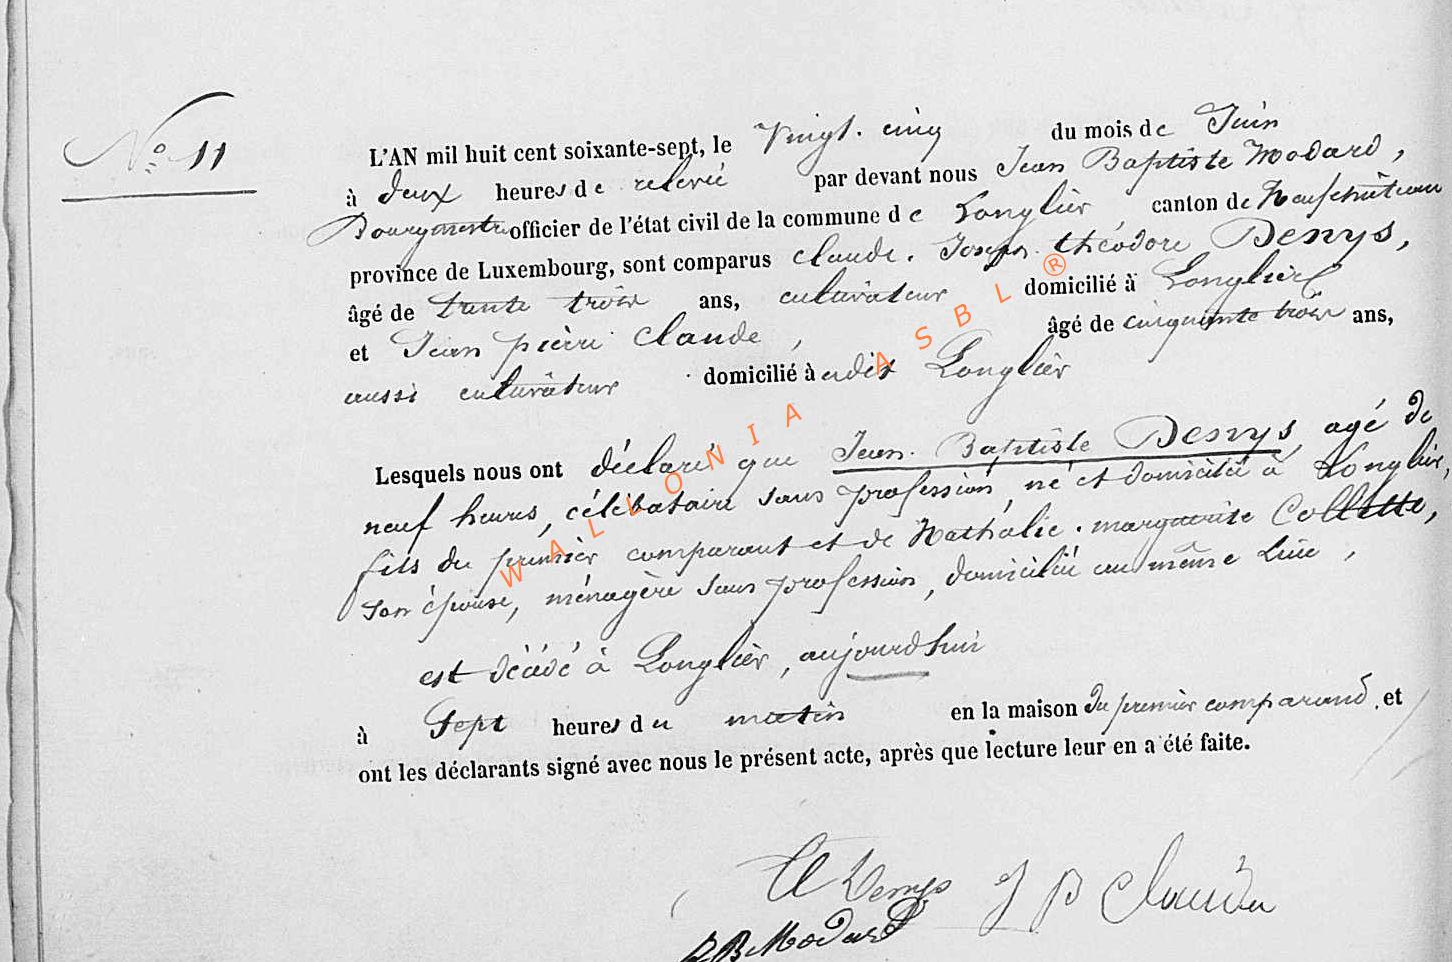 N° 11
L'AN mil huit cent soixante-sept, le Vingt-cinq du mois de Juin
à deux heures de relevée par devant nous Jean Baptiste Modard,
Bourgmestre officier de l'état civil de la commune de Longlier canton de Neufchâteau
province de Luxembourg, sont comparus Claude. Joseph. théodore Denys,
âgé de trente trois ans, cultivateur domicilié à Longlier
et Jean pierre Claude, âgé de cinquante trois ans,
aussi cultivateur domicilié à udit Longlier
Lesquels nous ont déclaré que Jean. Baptiste Denys, agé de
neuf heures, célébataire sans profession, né et domicilié à Longlier,
fils du premier comparant et de Nathalie. marguerite Collette,
son épouse, ménagère sans profession, domiciliée au même Lieu,
est décédé à Longlier, aujourdhui
à Sept heures du matin en la maison du premier comparand, et
ont les déclarants signé avec nous le présent acte, après que lecture leur en a été faite.
Denys J P Claude
JB Modard
WALLONIA ASBL ®